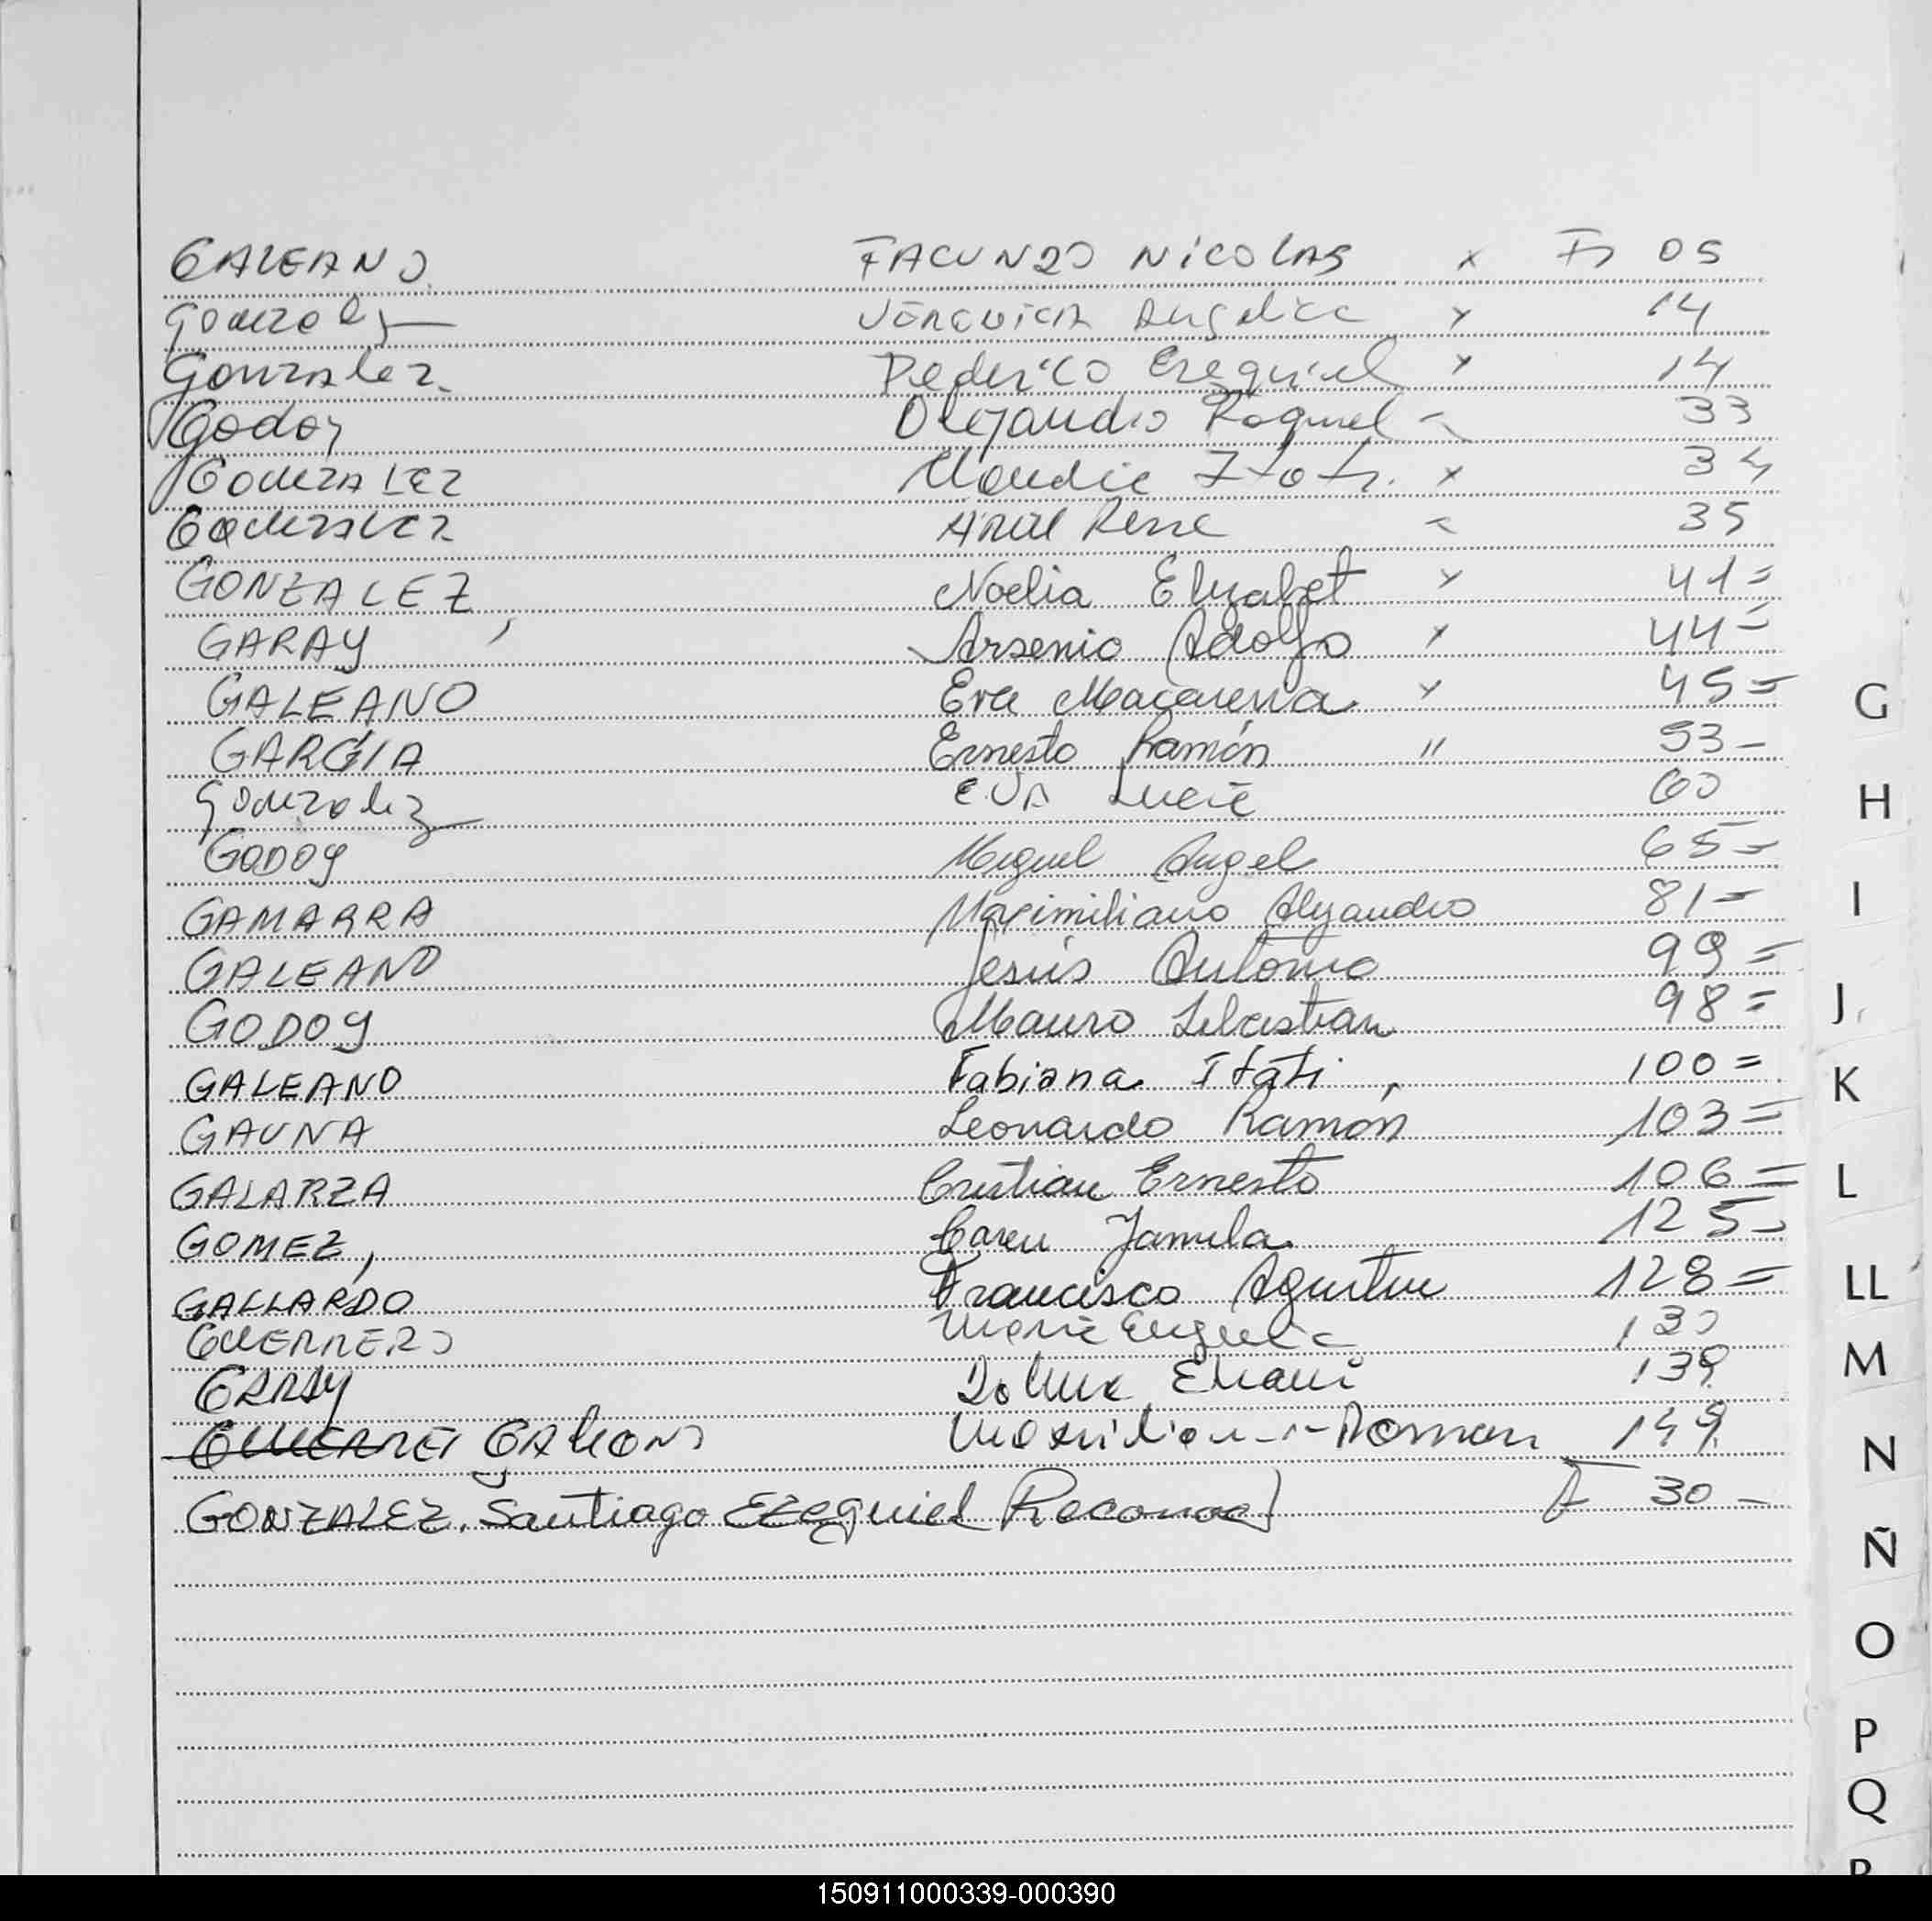 GALEANO FACUNDO NICOLAS x Fs 05
Gonzalez VERONICA Angelica x 14
Gonzalez Federico Ezequiel x 14
Godoy Alejandro Raquel 33
GONZALEZ Claudia x 34
GONZALEZ Ariel Rene 35
GONZALEZ, Noelia Elizabet x 41=
GARAY Arsenio Adolfo x 44=
GALEANO Eva Macarena x 45=
GARCIA Ernesto Ramón " 53-
Gonzalez EVA Lucia 60
GODOY Miguel Angel 65=
GAMARRA Maximiliano Alejandro 81=
GALEANO Jesús Antonio 99=
GODOY Mauro Sebastian 98=
GALEANO Fabiana Itati 100=
GAUNA Leonardo Ramón 103=
GALARZA Cristian Ernesto 106=
GOMEZ, Caren Jamila 125-
GALLARDO Francisco Agustin 128=
GUERRERO Maria Eugenia 130
GARAY 139
GALEANO Roman 149
GONZALEZ. Santiago EZEquiel (Reconoc) F 30-
G
H
I
J
K
L
LL
M
N
Ñ
O
P
Q
R
150911000339-000390